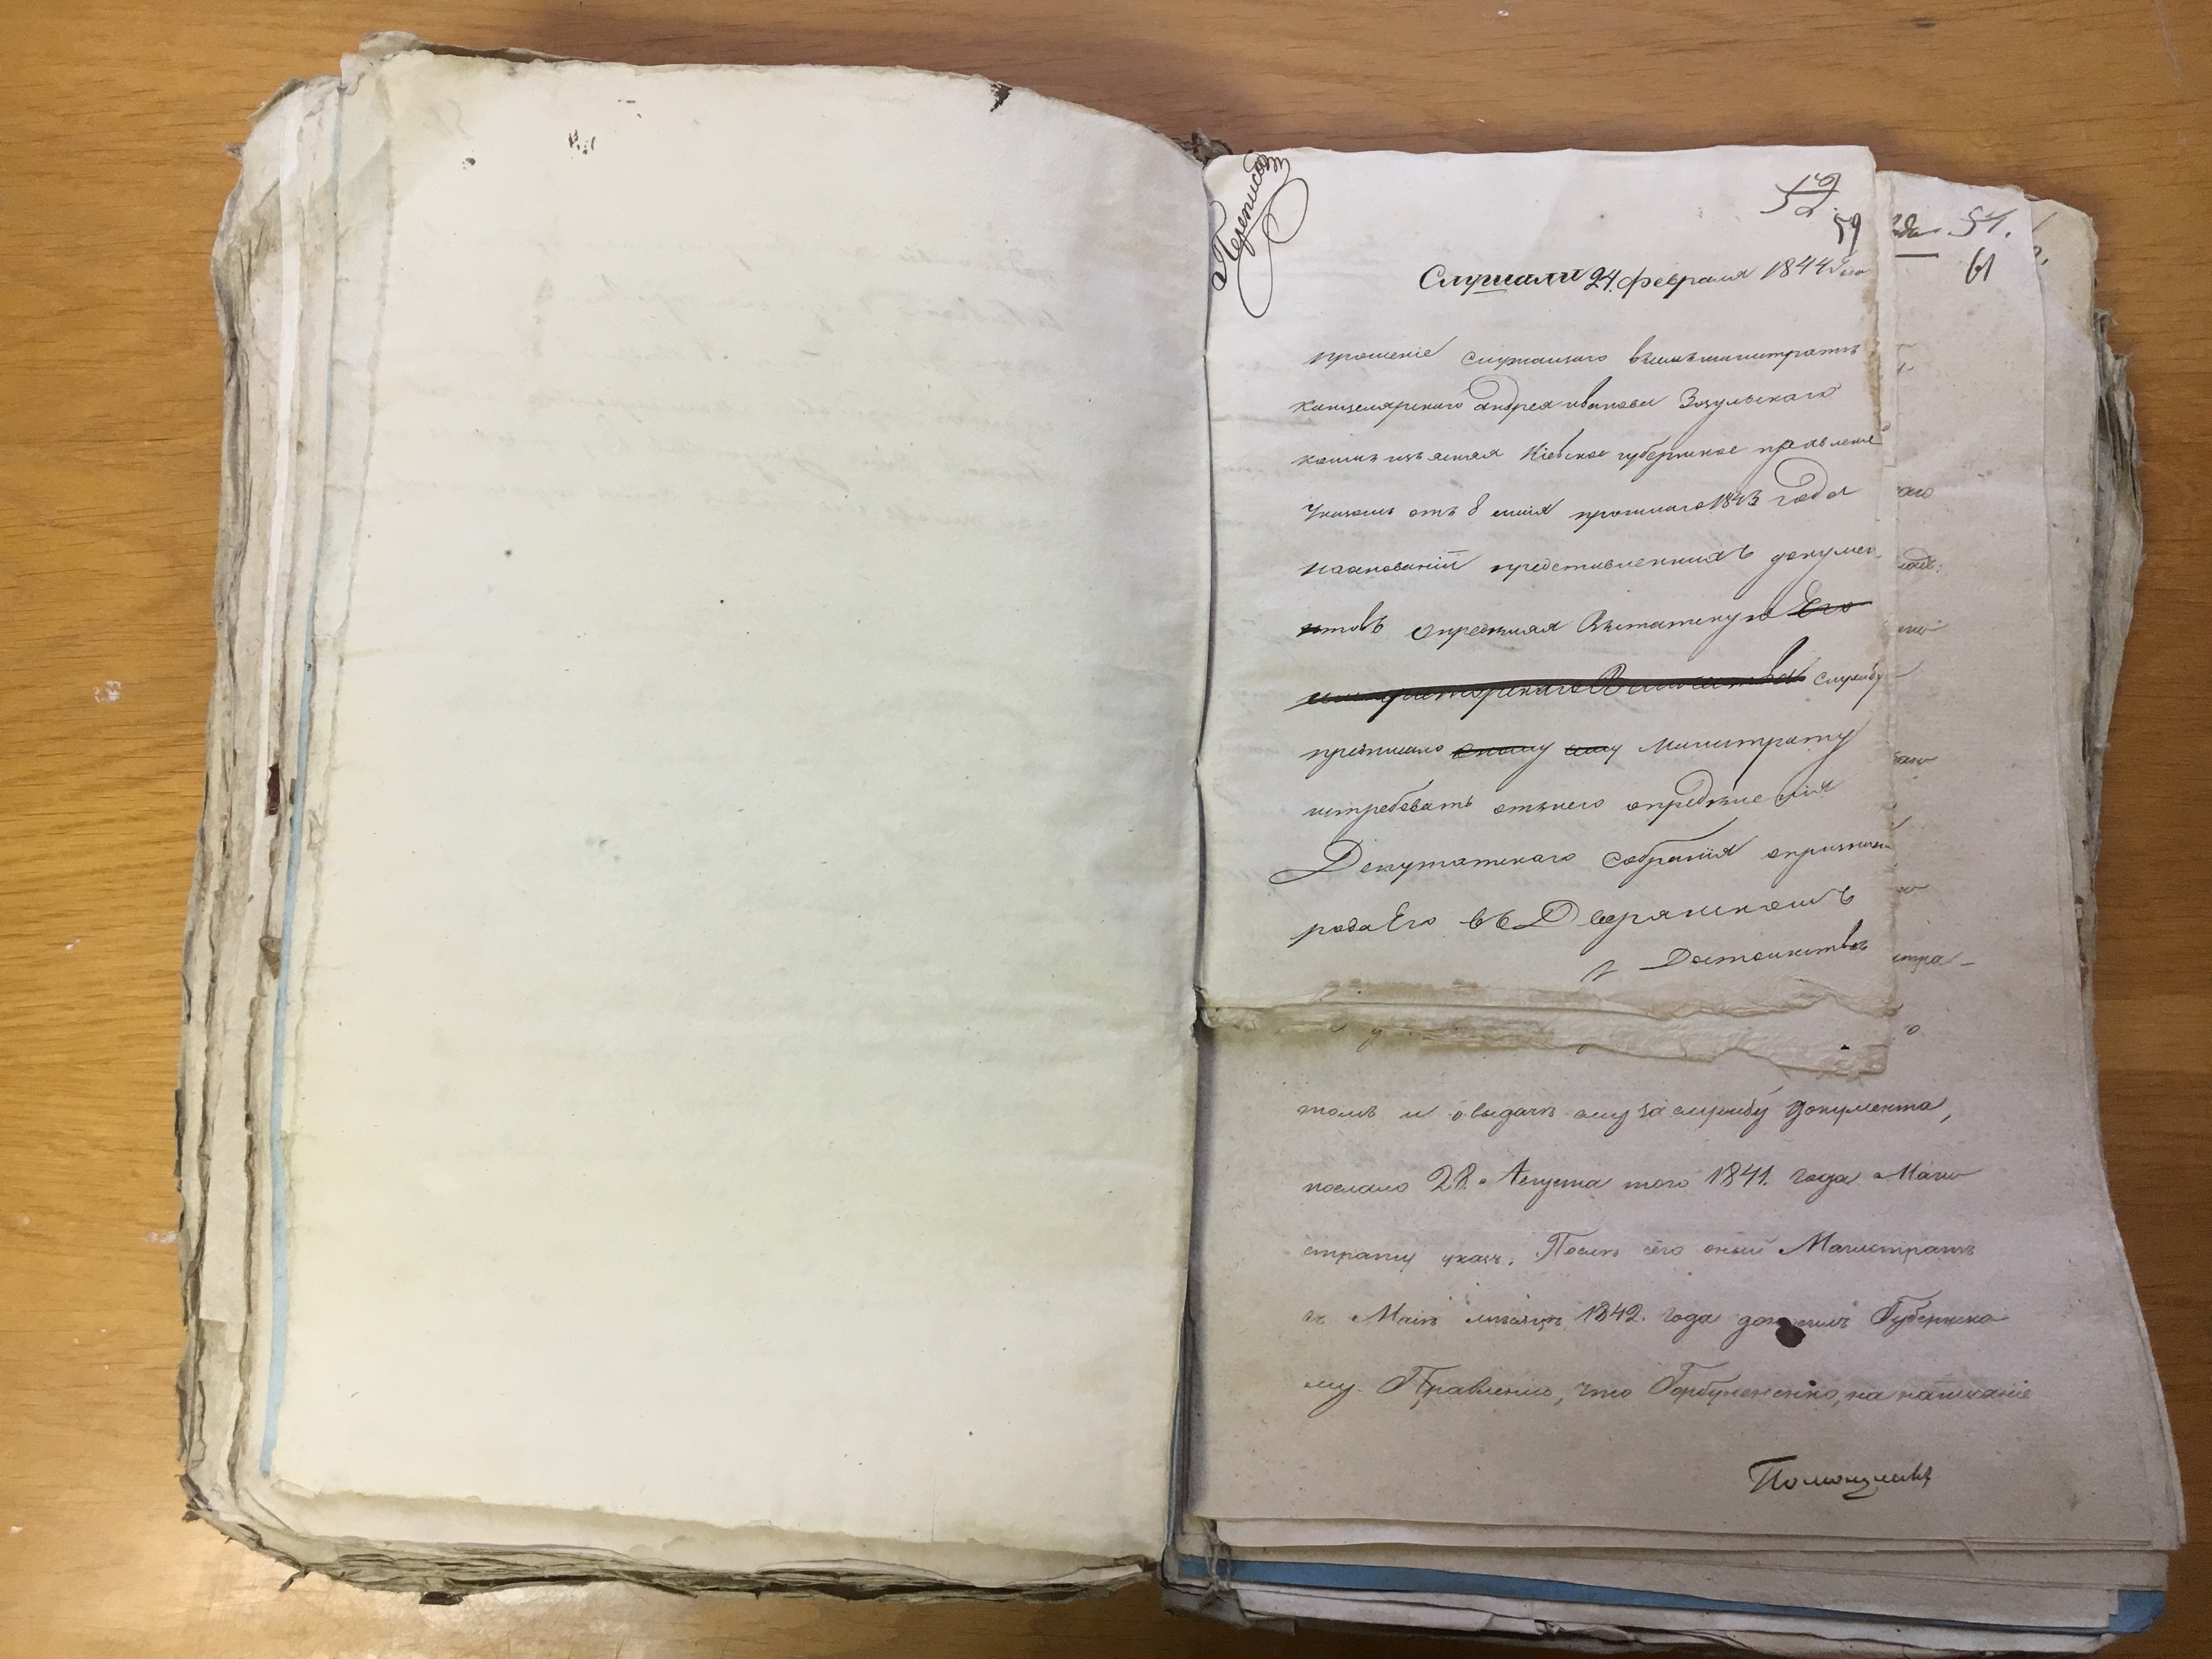 Переписат
52
59
Слушали 24. февраля 1844 года
прошеніе служащаго въсемъ магистратѣ
канцелярскаго андрея иванова Зозульскаго
коимъ изъясняя Кіевское губернское правленіе
Указомъ отъ 8 мая прошлаго 1843 года
наоснованіи представленныхъ докумен
товъ опредѣляя Встатскую Его
императорскаго Величества службу
предписало оному ему Магистрату
истребовать отънего опредѣленія
Депутатскаго собранія опризнаніи
рода Его въ Дворянскомъ
Достоинствѣ
51.
61
томъ и овыдачѣ ему за службу документа,
послано 28. Августа того 1841. года Маги
страту указъ. Послѣ сего оный Магистратъ
въ Маѣ мѣсяцѣ 1842. года доносилъ Губернско
му Правленію, что Горбуненко, на написаніе
Помощникъ